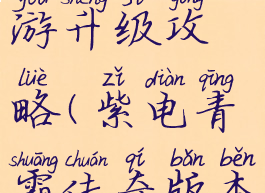 yóu shēng jí gōng
游升级攻
lüè zǐ diàn qīng
略(紫电青
shuāng chuán qí bǎn běn
霜传奇版本